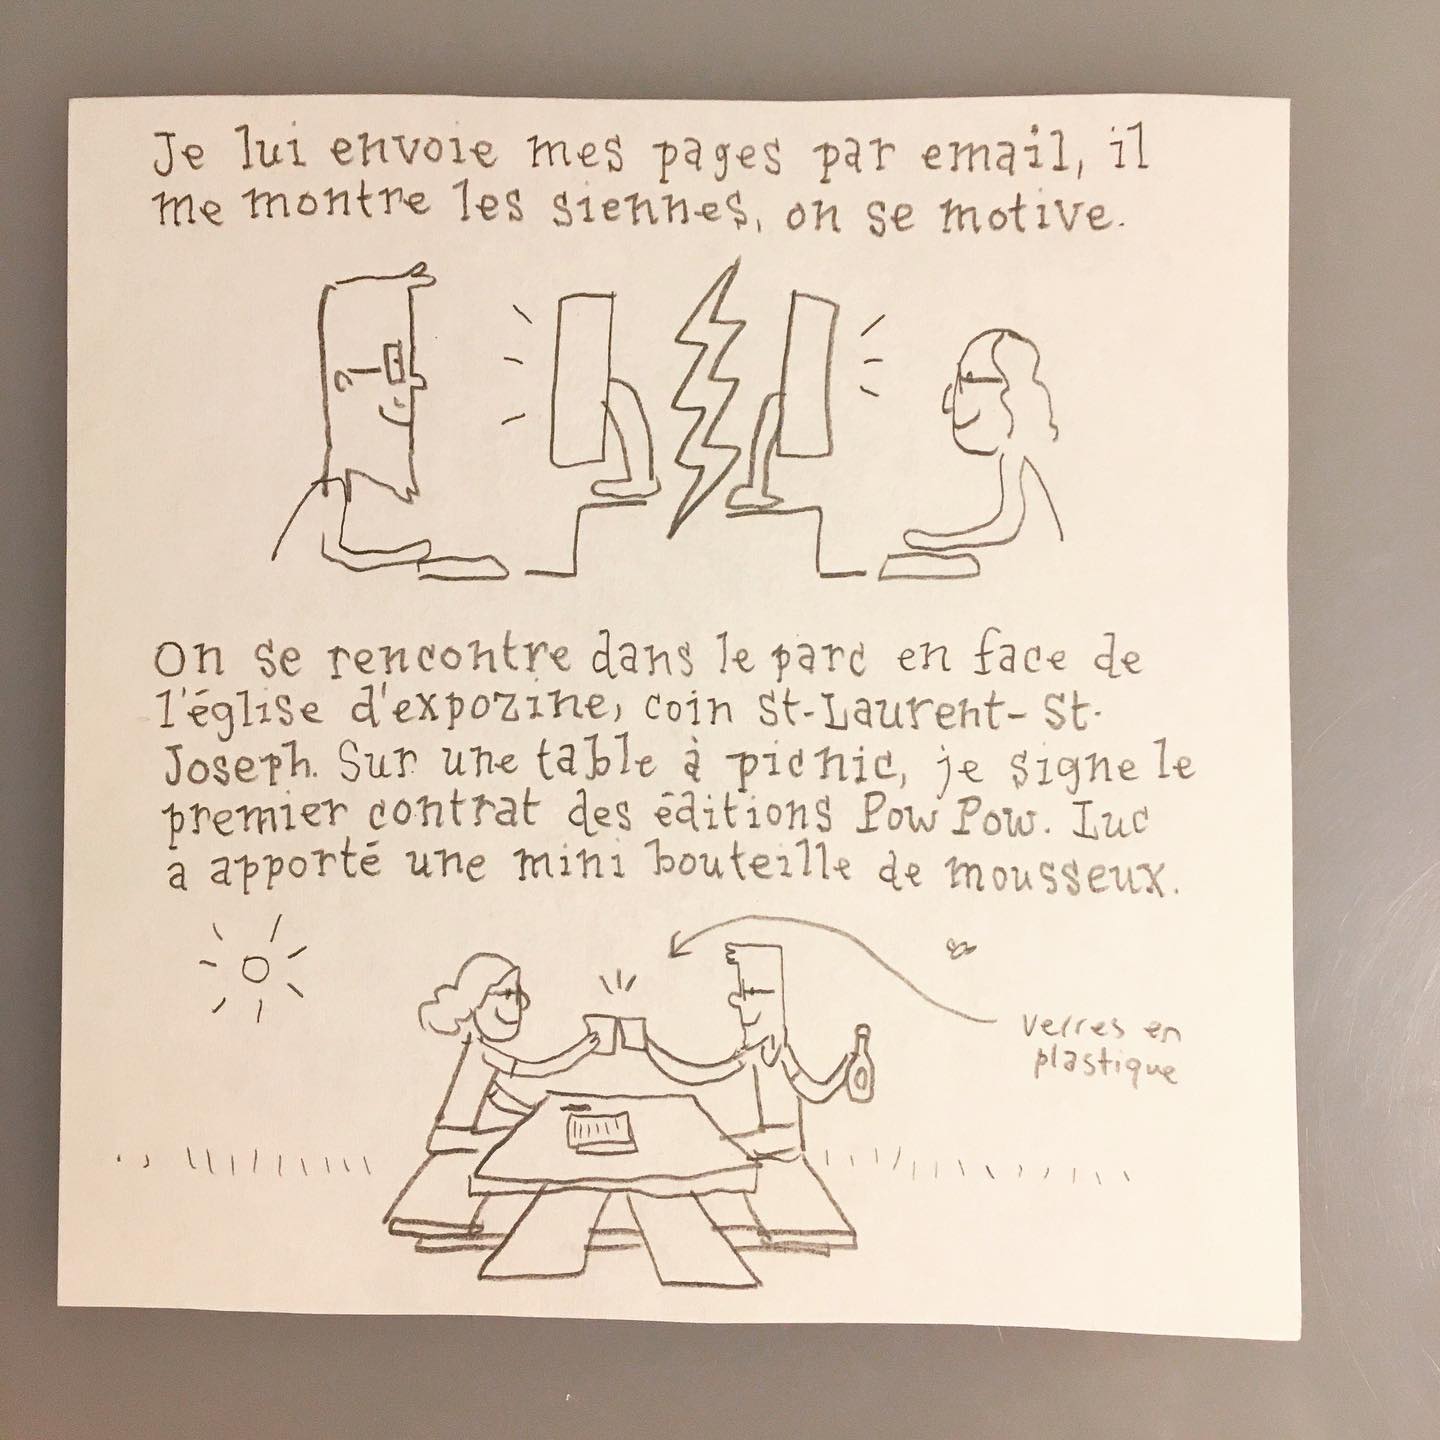 Je lui envoie mes pages par email, il
me montre les siennes, on se motive.
On se rencontre dans le parc en face de
l'église d'expozine, coin St-Laurent-St-
Joseph. Sur une table à picnic, je signe le
premier contrat des éditions Pow Pow. Luc
a apporté une mini bouteille de mousseux.
verres en
plastique